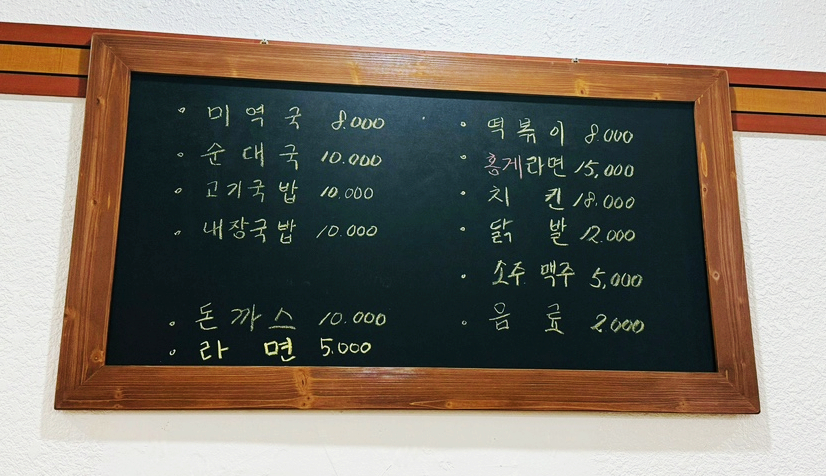 • 미역국 8.000
• 순대국 10.000
• 고기국밥 10.000
• 내장국밥 10.000
• 돈까스 10.000
• 라면 5.000
• 떡볶이 8.000
• 홍게라면 15,000
• 치킨 18.000
• 닭발 12.000
• 소주 맥주 5,000
• 음료 2000